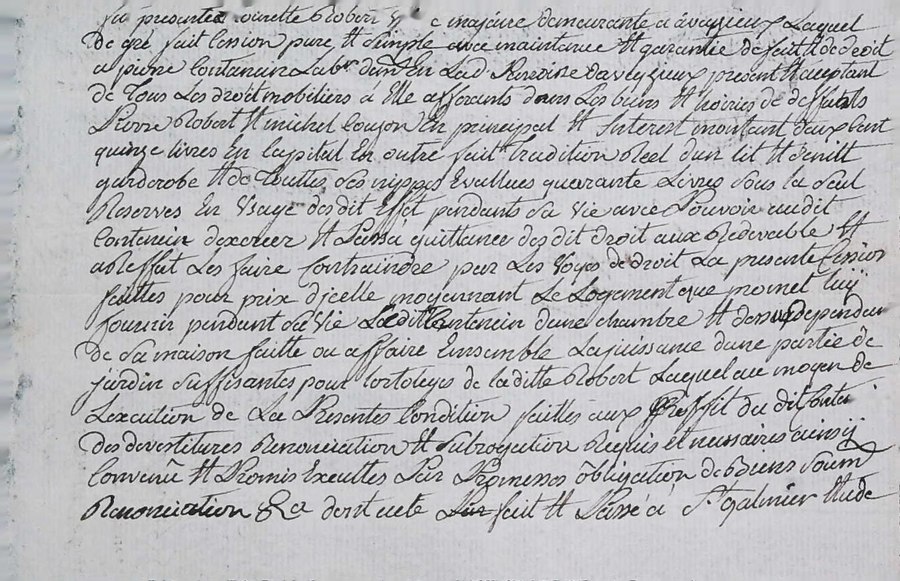 fu presente Robert majaire demeurante a aveyzieux Laquel
De gré fait Cession pure Et Simple avec maintenance Et garantie de fait Et de droit
a pierre Contancin Lab.r En Lad. Parroisse daveyzieux present Et aceptant
de Tous Les droit mobiliers à Elle afferants dans Les biens Et hoiries de deffunts
Pierre Robert Et michel En principal Et Interest montant deux Cent
quinze livres En Capital En outre fait Tradition Reel dun lit Et
garderobe Et de Touttes Ses nippes Evallues quarante Livres Sous la Seul
Reserves En Usage desdit Effet pendants Sa Vie avec Pouvoir audit
Contencin dexiger Et Passa quittance desdit droit aux Redevable Et
a Leffat Les faire Contraindre par Les Voyes de droit La presente Cession
faittes pour prix dicelle moyennant Le Logement que promet luy
fournir pendant Sa Vie Ledit Contencin dune chambre Et
De Sa maison faitte ou affaire Ensemble La juissance dune partie de
jardin Suffisantes pour de laditte Robert Laquel au moyen de
Lexecution de La Presentes Condition faittes aux Proffit du dit
des devestitures Renonciation Et Subrogation Requis et necessaires ainsy
Convenu Et Promis Executtes Par Promesses obligation de Biens Soum
Renonciation &a dont acte fait Et Passé à St galmier Etude